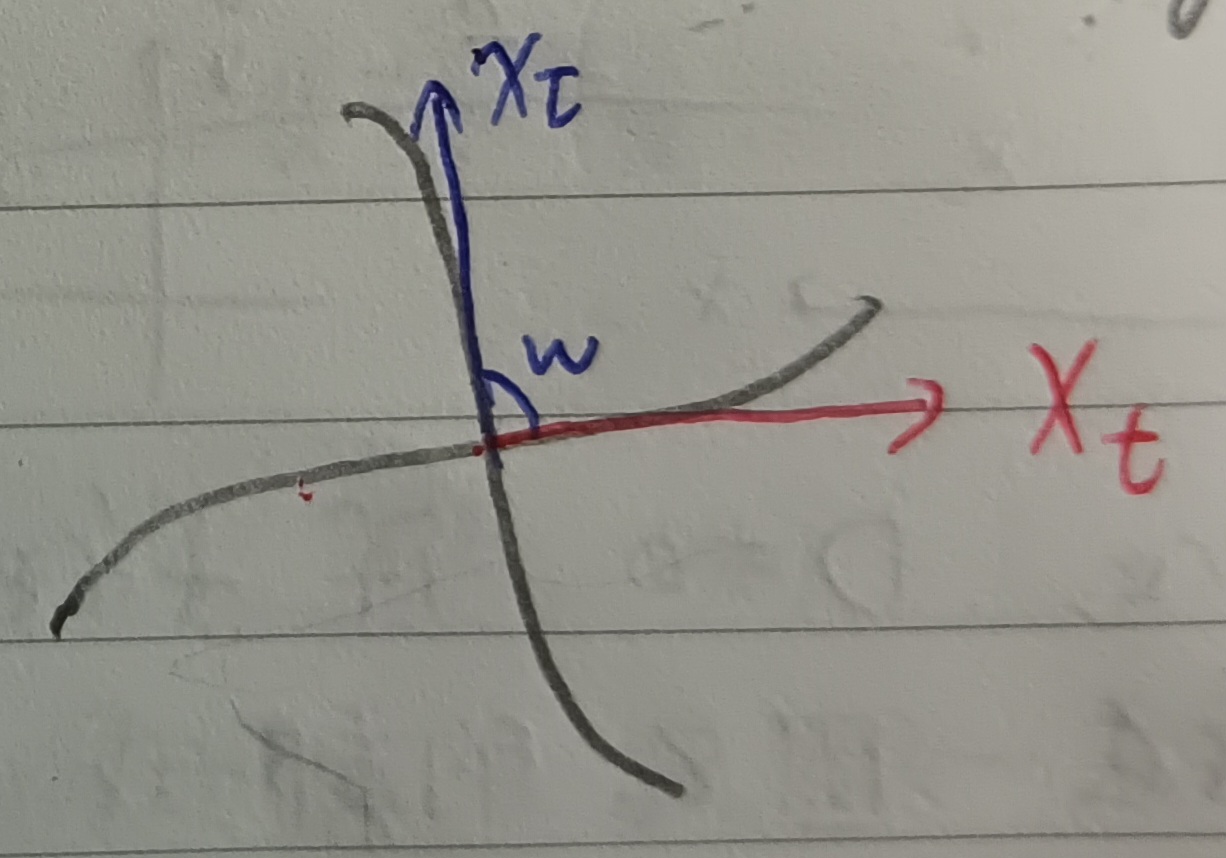 x_τ
w
X_t